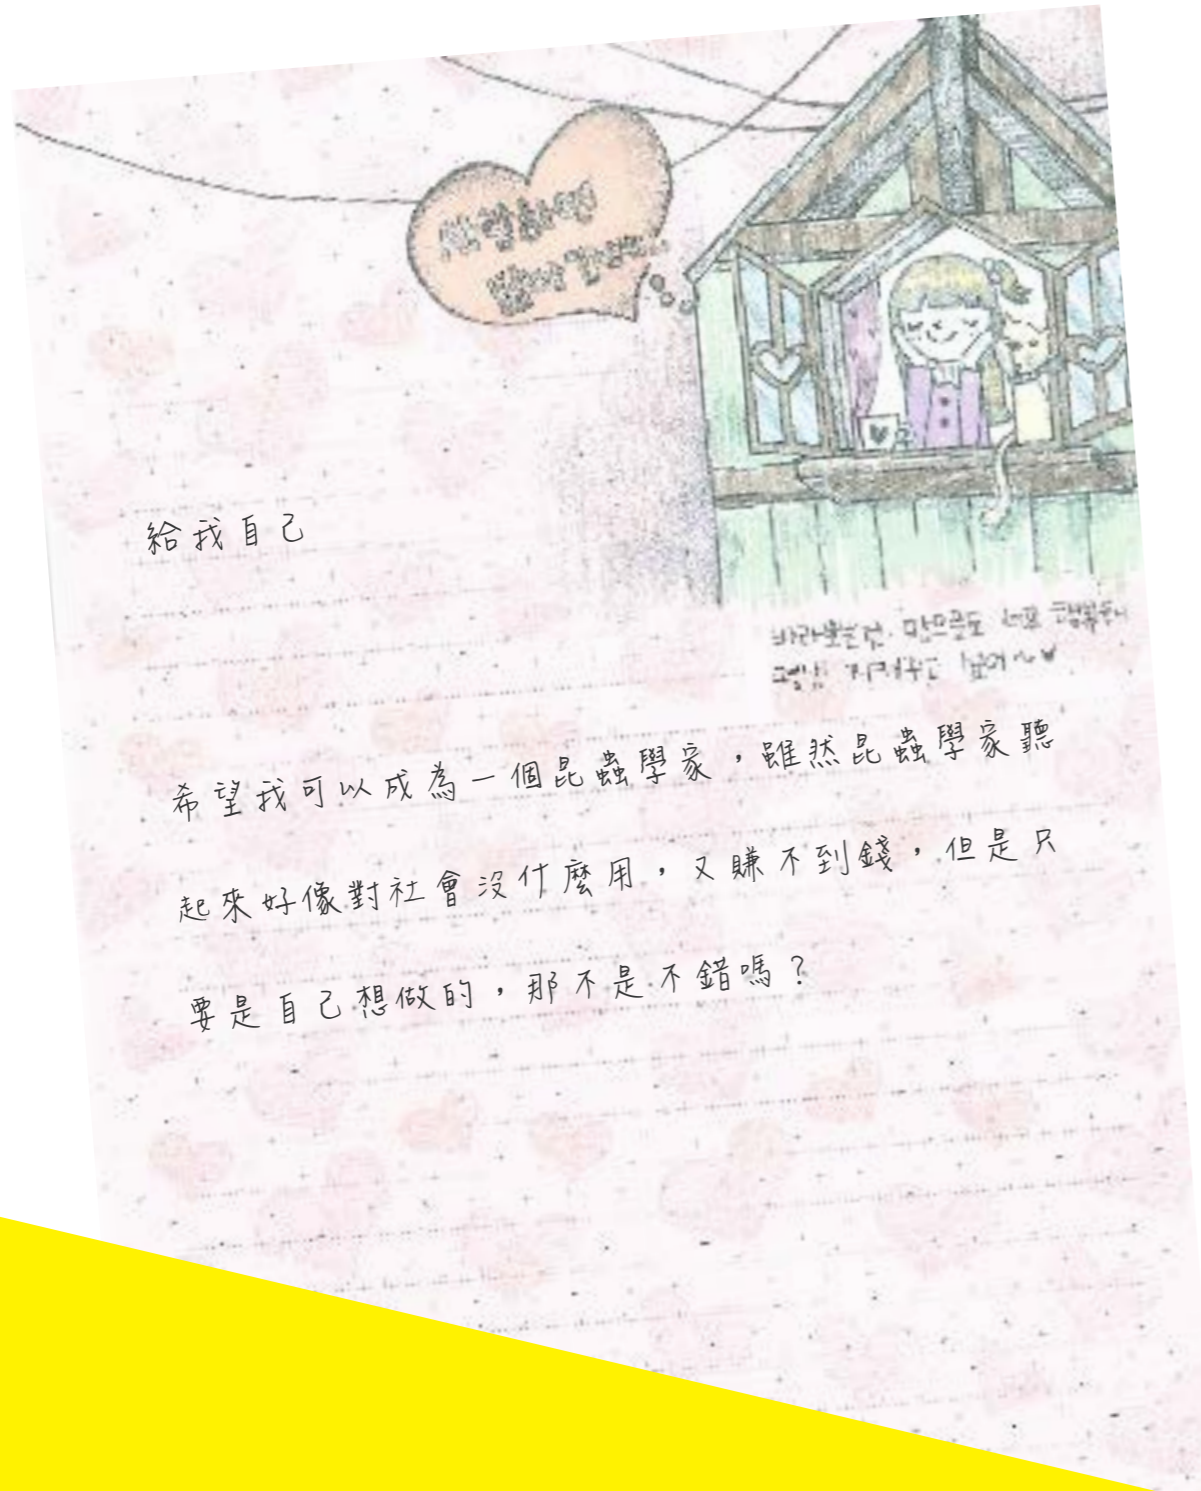 給我自己
希望我可以成為一個昆蟲學家，雖然昆蟲學家聽
起來好像對社會沒什麼用，又賺不到錢，但是只
要是自己想做的，那不是不錯嗎？